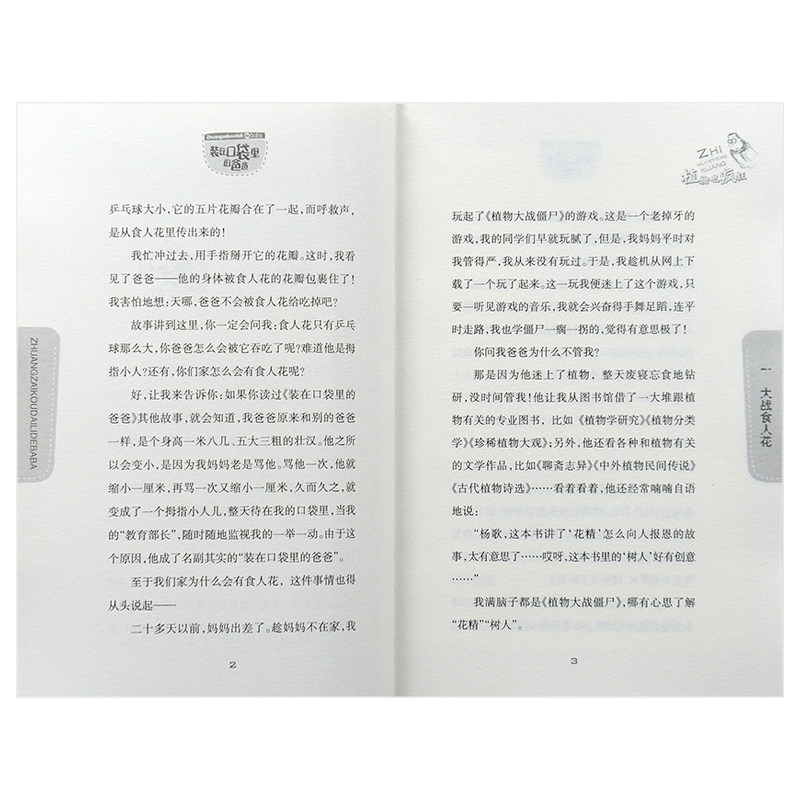 装在口袋里
的爸爸
乒乓球大小，它的五片花瓣合在了一起，而呼救声，
是从食人花里传出来的！
我忙冲过去，用手指掰开它的花瓣。这时，我看
见了爸爸——他的身体被食人花的花瓣包裹住了！
我害怕地想：天哪，爸爸不会被食人花给吃掉吧？
故事讲到这里，你一定会问我：食人花只有乒乓
球那么大，你爸爸怎么会被它吞吃了呢？难道他是拇
指小人？还有，你们家怎么会有食人花呢？
好，让我来告诉你：如果你读过《装在口袋里的
爸爸》其他故事，就会知道，我爸爸原来和别的爸爸
一样，是个身高一米八几、五大三粗的壮汉。他之所
以会变小，是因为我妈妈老是骂他。骂他一次，他就
缩小一厘米，再骂一次又缩小一厘米，久而久之，就
变成了一个拇指小人儿，整天待在我的口袋里，当我
的“教育部长”，随时随地监视我的一举一动。由于这
个原因，他成了名副其实的“装在口袋里的爸爸”。
至于我们家为什么会有食人花，这件事情也得
从头说起——
二十多天以前，妈妈出差了。趁妈妈不在家，我
2
ZHUANGZAIKOUDAILIDEBABA
ZHI
KUANG
植物也疯狂
玩起了《植物大战僵尸》的游戏。这是一个老掉牙的
游戏，我的同学们早就玩腻了，但是，我妈妈平时对
我管得严，我从来没有玩过。于是，我趁机从网上下
载了一个玩了起来。这一玩我便迷上了这个游戏，只
要一听见游戏的音乐，我就会兴奋得手舞足蹈，连平
时走路，我也学僵尸一瘸一拐的，觉得有意思极了！
你问我爸爸为什么不管我？
那是因为他迷上了植物，整天废寝忘食地钻
研，没时间管我！他让我从图书馆借了一大堆跟植
物有关的专业图书，比如《植物学研究》《植物分类
学》《珍稀植物大观》；另外，他还看各种和植物有关
的文学作品，比如《聊斋志异》《中外植物民间传说》
《古代植物诗选》……看着看着，他还经常喃喃自语
地说：
“杨歌，这本书讲了‘花精’怎么向人报恩的故
事，太有意思了……哎呀，这本书里的‘树人’好有创意
……”
我满脑子都是《植物大战僵尸》，哪有心思了解
“花精”“树人”。
3
一 大战食人花